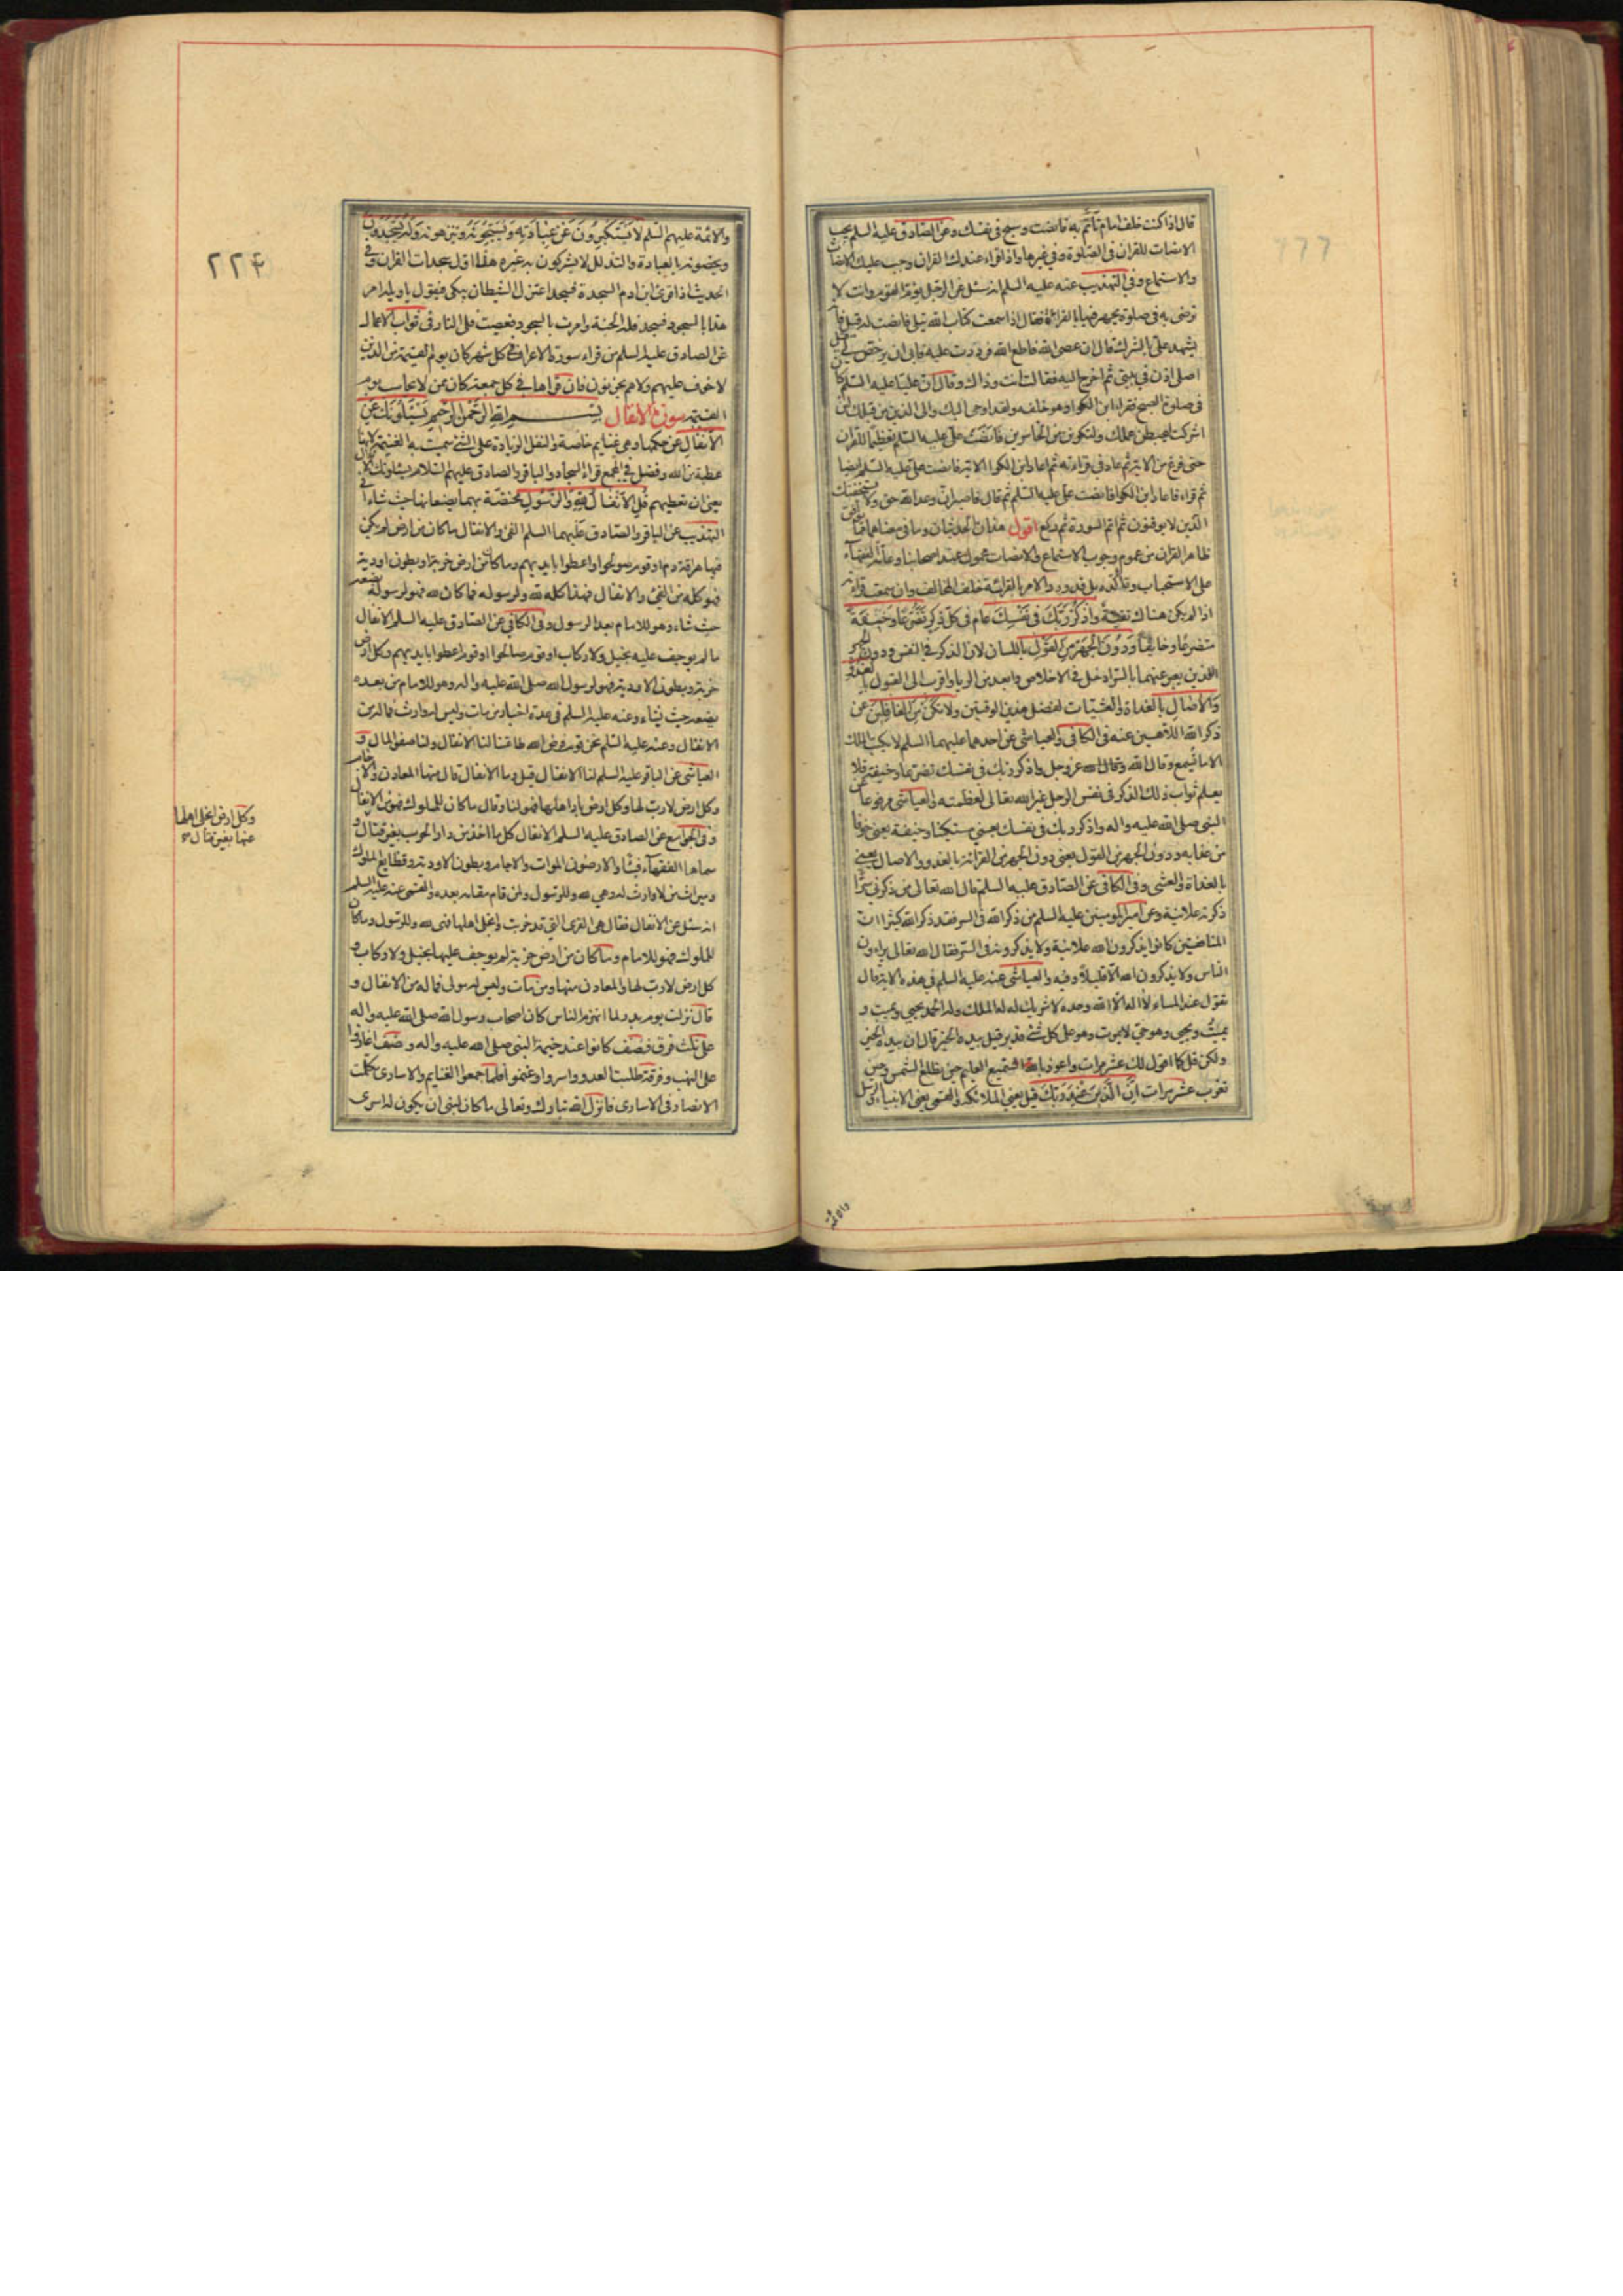 قال اذا كنت خلف امام تأتم به فانصت وسبح فى نفسك وعن الصادق عليه السلم يجب
الانصات للقران فى الصلوة وفى غيرها واذا قراء عندك القران وجب عليك الانصات
والاستماع وفى التهذيب عنه عليه السلم انه سئل عن الرجل يؤم القوم وانت لا
ترضى به فى صلوة يجهر فيها بالقراءة فقال اذا سمعت كتاب الله يتلى فانصت له قيل فانه
يشهد على بالشرك قال ان عصى الله فاطع الله فرددت عليه فابى ان يرخص لى قيل
اصلى اذن فى بيتى ثم اخرج اليه فقال انت وذاك وقال ان عليا عليه السلم كان
فى صلوة الصبح فقراء ابن الكوا وهو خلفه ولقد اوحى اليك والى الذين من قبلك لئن
اشركت ليحبطن عملك ولتكونن من الخاسرين فانصت على عليه السلم تعظيما للقران
حتى فرغ من الاية ثم عاد فى قراءته ثم اعاد ابن الكوا الاية فانصت على عليه السلم ايضا
ثم قراء فاعاد ابن الكوا فانصت على عليه السلم ثم قال فاصبر ان وعد الله حق ولا يستخفنك
الذين لا يوقنون ثم اتم السورة ثم ركع اقول هذان الحديثان وما فى معناهما مما يوافق
ظاهر القران من عموم وجوب الاستماع والانصات محمول عند اصحابنا وعامة الفقهاء
على الاستحباب وتاكده بل قد ورد الامر بالقرائة خلف المخالف وان سمعت قرائته
اذا لم يكن هناك تقية واذكر ربك فى نفسك عام فى كل ذكر تضرعا وخيفة
متضرعا وخايفا ودون الجهر من القول باللسان لان الذكر فى النفس ودون الجهر
اللذين يعبر عنهما بالسر ادخل فى الاخلاص وابعد من الريا واقرب الى القبول بالغدو
والاصال بالغداة والعشيات لفضل هذين الوقتين ولا تكن من الغافلين عن
ذكر الله اللاهين عنه فى الكافى والعياشى عن احدهما عليهما السلم لا يكتب الملك
الا ما يسمع وقال الله عز وجل واذكر ربك فى نفسك تضرعا وخيفة فلا
يعلم ثواب ذلك الذكر فى نفس الرجل غير الله تعالى لعظمته والعياشى مرفوعا عن
النبى صلى الله عليه واله واذكر ربك فى نفسك يعنى مستكينا وخيفة يعنى خوفا
من عذابه ودون الجهر من القول يعنى دون الجهر من القرائة بالغدو والاصال يعنى
بالغداة والعشى وفى الكافى عن الصادق عليه السلم قال الله تعالى من ذكرنى سرا
ذكرته علانية وعن امير المومنين عليه السلم من ذكر الله فى السر فقد ذكر الله كثيرا ان
المنافقين كانوا يذكرون الله علانية ولا يذكرونه فى السر فقال الله تعالى يراؤن
الناس ولا يذكرون الله الا قليلا وفيه والعياشى عنه عليه السلم فى هذه الاية قال
تقول عند المساء لا اله الا الله وحده لا شريك له له الملك وله الحمد يحيى ويميت و
يميت ويحيى وهو حى لا يموت وهو على كل شئ قدير قيل بيده الخير قال ان بيده الخير
ولكن قل كما اقول لك عشر مرات واعوذ بالله السميع العليم حين تطلع الشمس وحين
تغرب عشر مرات ان الذين عند ربك قيل يعنى الملائكة والقمى يعنى الانبياء والرسل
والائمة
٢٢۴
والائمة عليهم السلم لا يستكبرون عن عبادته ويسبحونه وينزهونه وله يسجدون
ويخصونه بالعبادة والتذلل لا يشركون به غيره هذا اول سجدات القران وفى
الحديث اذا قرئ ابن ادم السجدة فسجد اعتزل الشيطان يبكى فيقول يا ويله امر
هذا بالسجود فسجد فله الجنة وامرت بالسجود فعصيت فلى النار فى ثواب الاعمال
عن الصادق عليه السلم من قراء سورة الاعراف فى كل شهر كان يوم القيمة من الذين
لا خوف عليهم ولا هم يحزنون فان قراها فى كل جمعة كان ممن لا يحاسب يوم
القيمة سورة الانفال بسم الله الرحمن الرحيم يسئلونك عن
الانفال عن حكمها وهى غنايم خاصة والنفل الزيادة على الشئ سميت به الغنيمة لانها
عطية من الله وفضل فى المجمع قراء السجاد والباقر والصادق عليهم السلام يسئلونك الانفال
يعنى ان تعطيهم قل الانفال لله والرسول مختصة بهما يضعانها حيث شاءا فى
التهذيب عن الباقر والصادق عليهما السلم الفئ والانفال ما كان من ارض لم يكن
فيها هراقة دم او قوم صولحوا واعطوا بايديهم وما كان من ارض خربة او بطون اودية
فهو كله من الفئ والانفال فهذا كله لله ولرسوله فما كان لله فهو لرسوله يضعه
حيث شاء وهو للامام بعد الرسول وفى الكافى عن الصادق عليه السلم الانفال
ما لم يوجف عليه بخيل ولا ركاب او قوم صالحوا او قوم اعطوا بايديهم وكل ارض
خربة وبطون الاودية فهو لرسول الله صلى الله عليه واله وهو للامام من بعده
يضعه حيث يشاء وعنه عليه السلم فى عدة اخبار من مات وليس له وارث فماله من
الانفال وعنه عليه السلم نحن قوم فرض الله طاعتنا لنا الانفال ولنا صفو المال و
العياشى عن الباقر عليه السلم لنا الانفال قيل وما الانفال قال منها المعادن والاجام
وكل ارض لا رب لها وكل ارض باد اهلها فهو لنا وقال ما كان للملوك فهو من الانفال
وفى الجوامع عن الصادق عليه السلم الانفال كل ما اخذ من دار الحرب بغير قتال و
وكل ارض انجلى اهلها
عنها بغير قتال
سماها الفقهاء فيئا والارضون الموات والاجام وبطون الاودية وقطايع الملوك
وميراث من لا وارث له وهى لله وللرسول ولمن قام مقامه بعده والقمى عنه عليه السلم
انه سئل عن الانفال فقال هى القرى التى قد خربت وانجلى اهلها فهى لله وللرسول وما كان
للملوك فهو للامام وما كان من ارض خربة لم يوجف عليها بخيل ولا ركاب و
كل ارض لا رب لها والمعادن منها ومن مات وليس له مولى فماله من الانفال و
قال نزلت يوم بدر لما انهزم الناس كان اصحاب رسول الله صلى الله عليه واله
على ثلث فرق فصنف كانوا عند خيمة النبى صلى الله عليه واله وصنف اغاروا
على النهب وفرقة طلبت العدو واسروا وغنموا فلما جمعوا الغنايم والاسارى تكلمت
الانصار فى الاسارى فانزل الله تبارك وتعالى ما كان لنبى ان يكون له اسرى